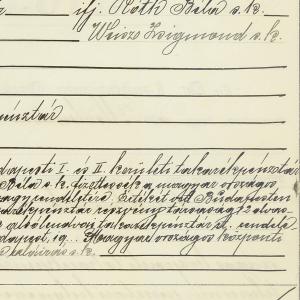 ifj. Róth Béla s. k.
Weisz Zsigmond s. k.
pénztár
dapesti I. és II. kerületi takarékpénztár
Béla s. k. fizettessék a magyar országos
vagy rendeletére. Értéket vett Budapesten
takarékpénztár részvény társaság
takarékpénztár rendelete
dapest, 19... Magyar országos központi
aláírás s. k.